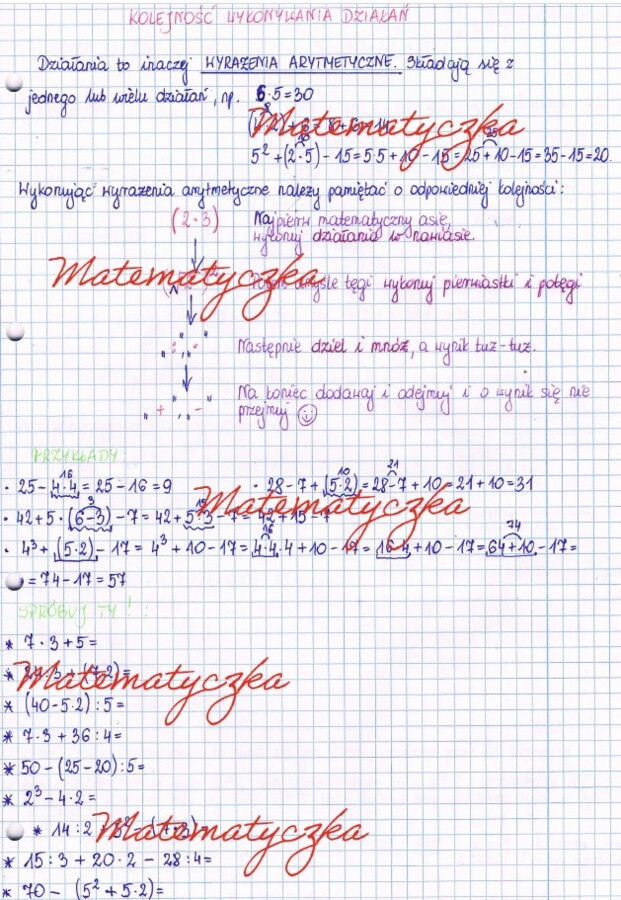 KOLEJNOŚĆ WYKONYWANIA DZIAŁAŃ
Działania to inaczej WYRAŻENIA ARYTMETYCZNE. Składają się z
jednego lub wielu działań, np. 6·5=30
Matematyczka
10 25
5² + (2·5) - 15 = 5·5 + 10 - 15 = 25 + 10 - 15 = 35 - 15 = 20.
Wykonując wyrażenia arytmetyczne należy pamiętać o odpowiedniej kolejności:
(2·3) Najpierw matematyczny asie,
wykonuj działania w nawiasie.
Matematyczka tęgi wykonuj pierwiastki i potęgi
„:”, „·” Następnie dziel i mnóż, a wynik tuż-tuż.
„+”, „-” Na koniec dodawaj i odejmuj i o wynik się nie
przejmuj
PRZYKŁADY
16 10 21
· 25 - 4·4 = 25 - 16 = 9 · 28 - 7 + (5·2) = 28 - 7 + 10 = 21 + 10 = 31
Matematyczka
3 15
· 42 + 5·(6-3) - 7 = 42 + 5·3 - 7 = 42 + 15 - 7
16 74
· 4³ + (5·2) - 17 = 4³ + 10 - 17 = 4·4·4 + 10 - 17 = 16·4 + 10 - 17 = 64 + 10 - 17 =
= 74 - 17 = 57
SPRÓBUJ TY!:
* 7·3 + 5 =
Matematyczka
* (40 - 5·2) : 5 =
* 7·3 + 36 : 4 =
* 50 - (25 - 20) : 5 =
* 2³ - 4·2 =
* 14 : 2
Matematyczka
* 15 : 3 + 20·2 - 28 : 4 =
* 70 - (5² + 5·2) =